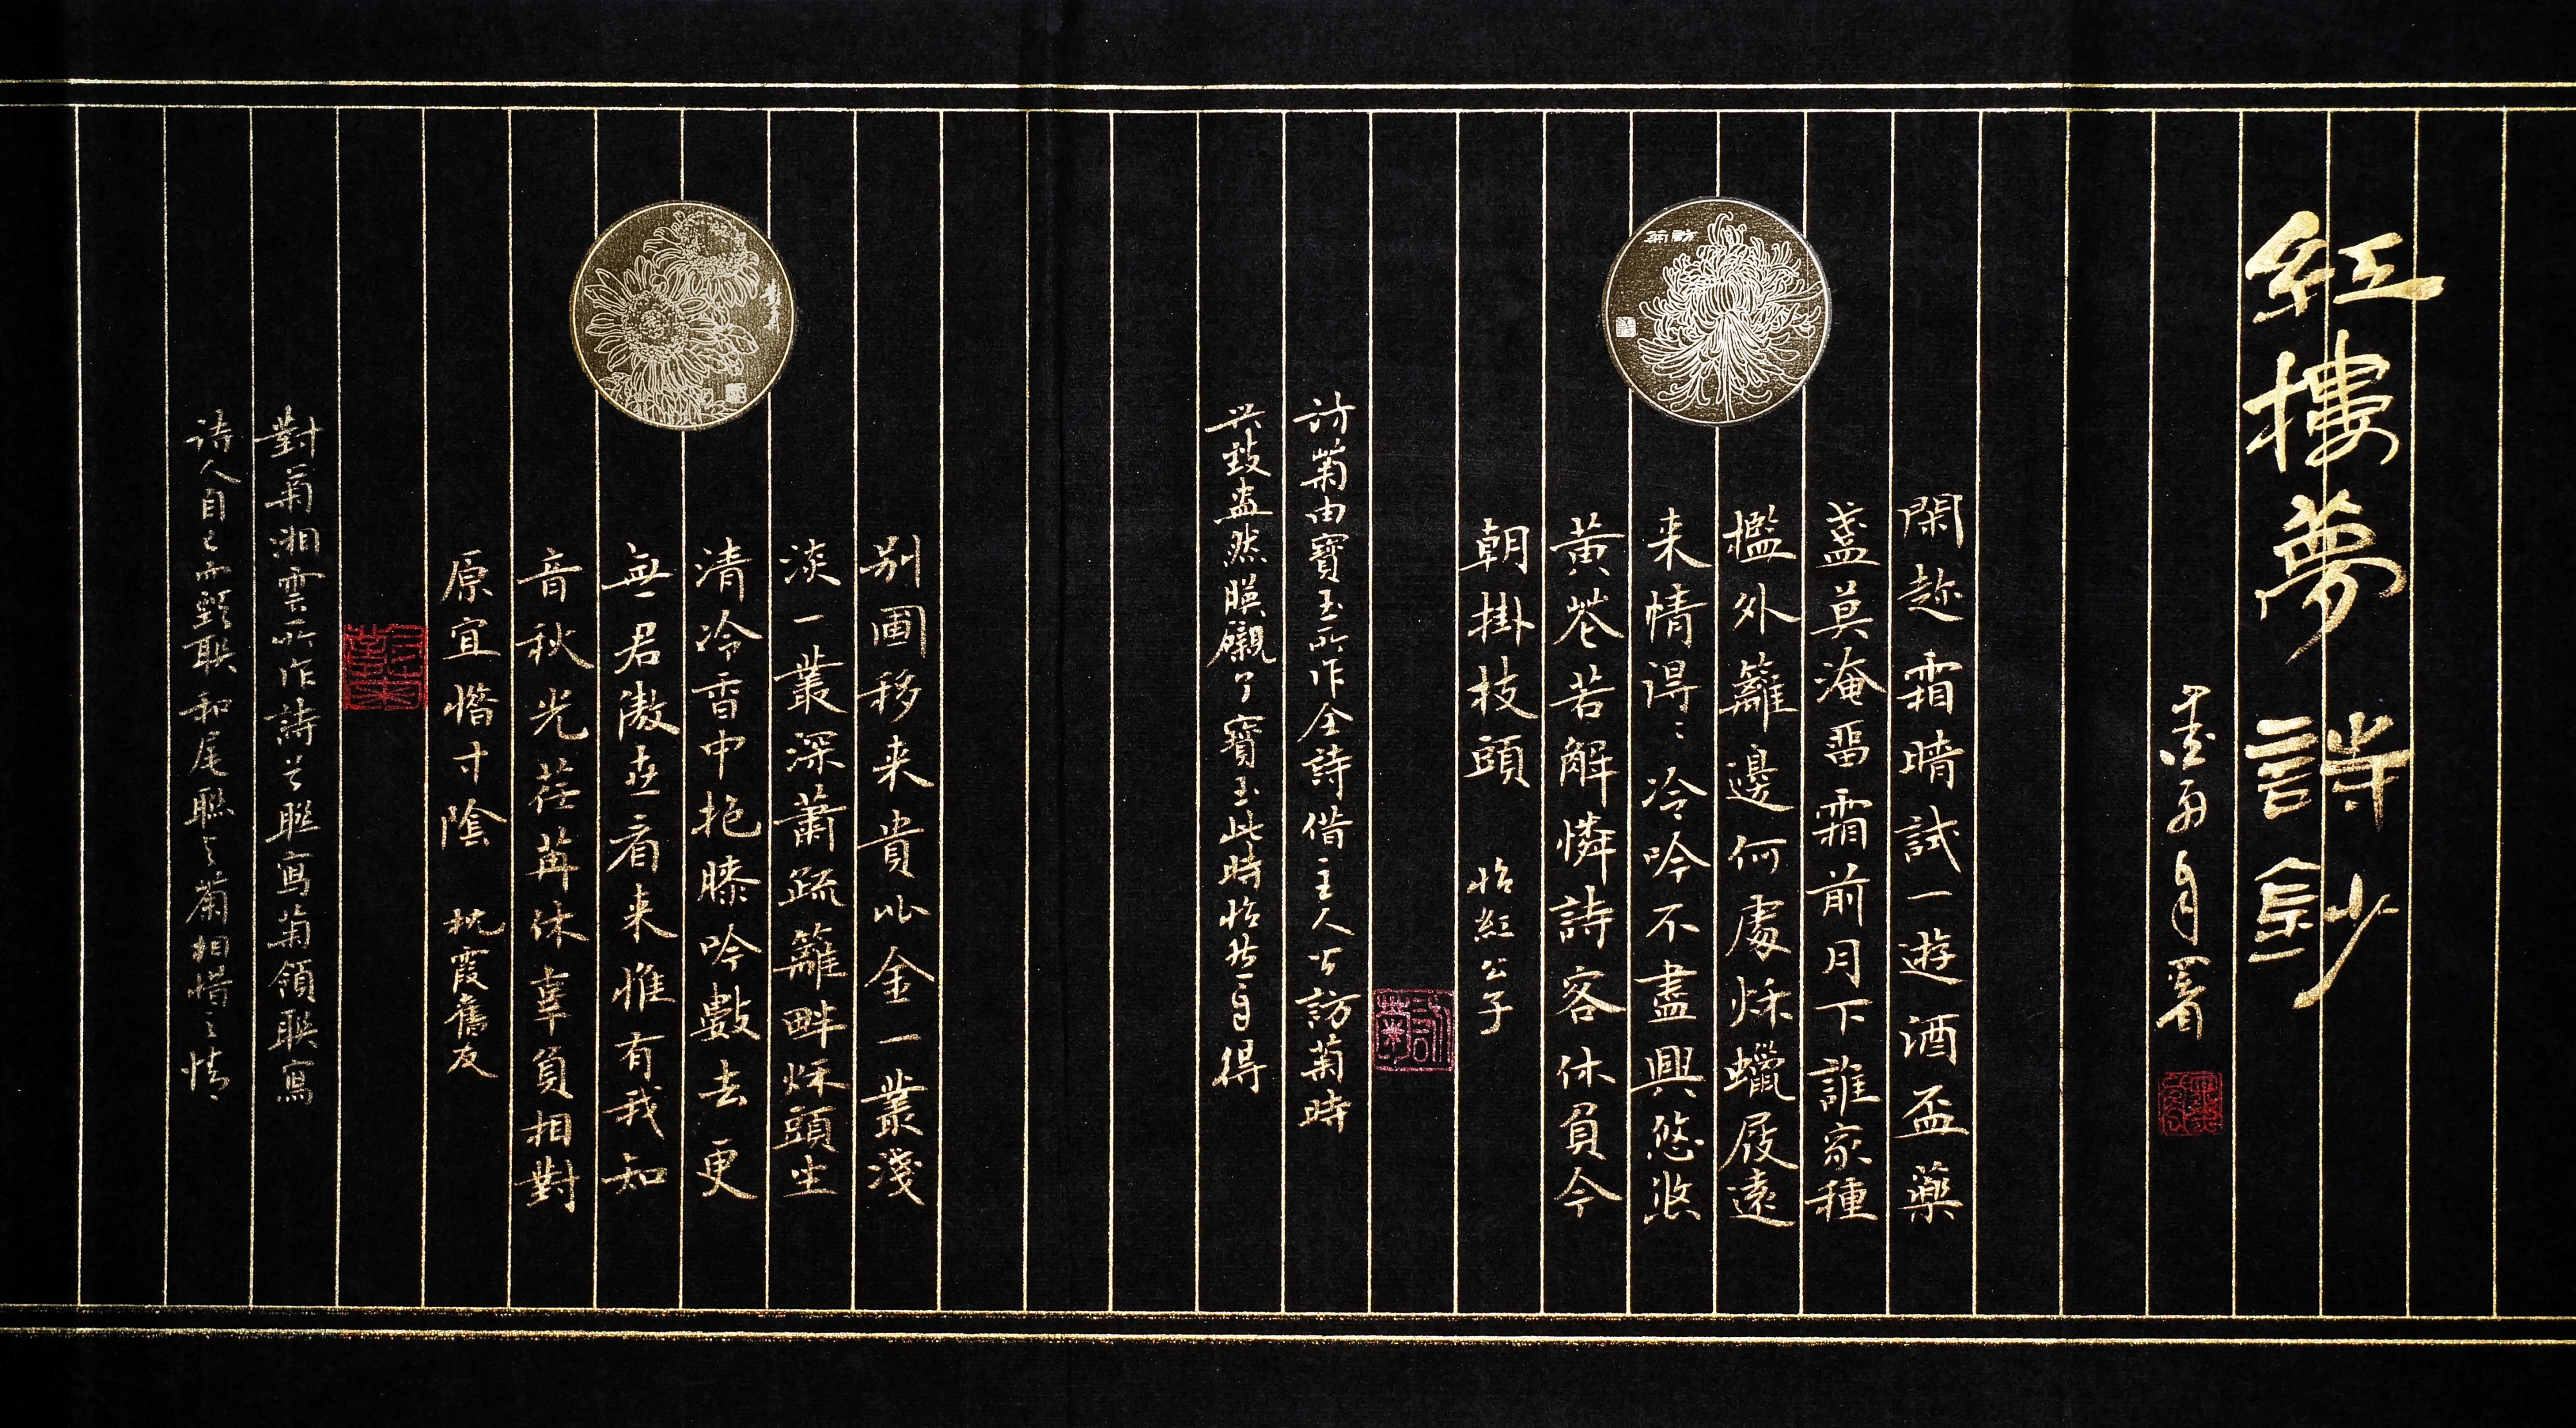 紅樓夢詩鈔
閑趂霜晴試一遊酒盃藥
盞莫淹畱霜前月下誰家種
檻外籬邊何處秌蠟屐遠
来情得〻冷吟不盡興悠悠
黃花若解憐詩客休負今
朝掛枝頭 怡紅公子
訪菊
訪菊由寶玉所作全詩借主人公訪菊時
興致盎然映襯了寶玉此時怡然自得
別圃移来貴比金一叢淺
淡一叢深蕭疏籬畔秌頭坐
清冷香中抱膝吟數去更
無君傲世看来惟有我知
音秋光荏苒休辜負相對
原宜惜寸陰 枕霞舊友
對菊
對菊湘雲所作詩首聯寫菊領联寫
诗人自己而頸联和尾聯與菊相惜之情